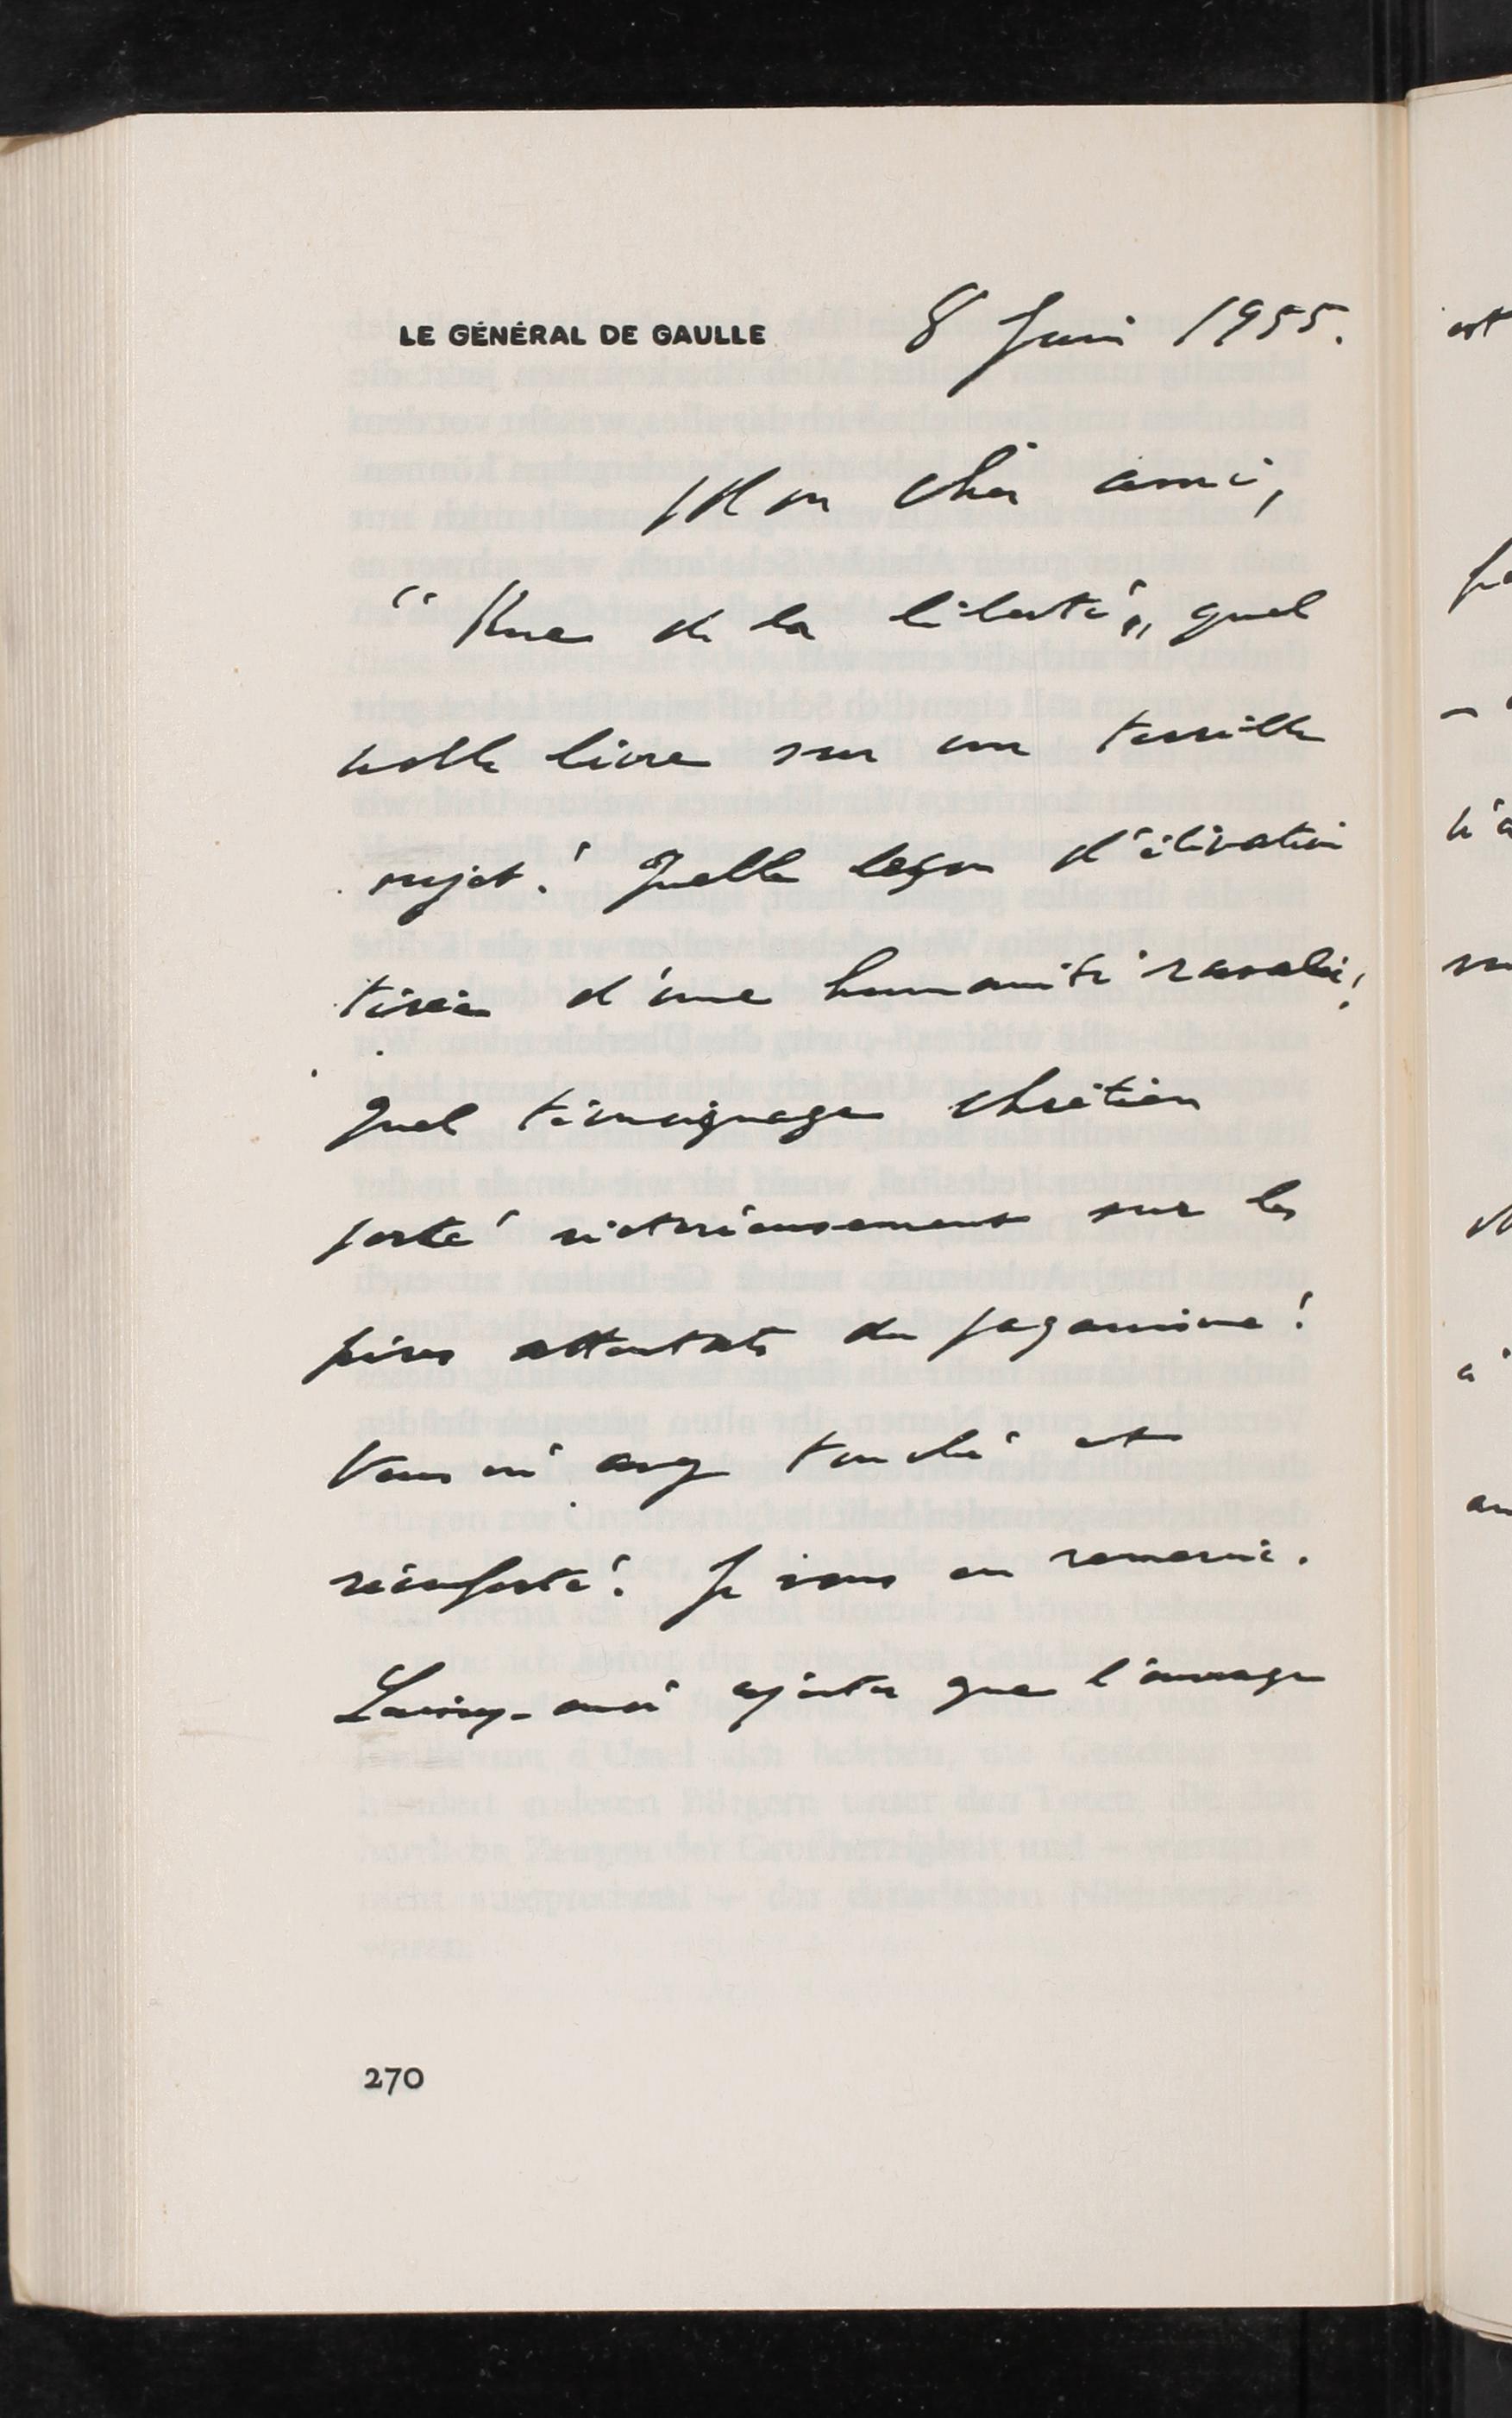 LE GÉNÉRAL DE GAULLE 8 Juin 1955.
Mon cher ami,
“ Rue de la liberté „, quel
noble livre sur un terrible
sujet ! Quelle leçon d'élévation
tirée d'une humanité ravalée !
Quel témoignage chrétien
porté victorieusement sur les
pires attentats du paganisme !
Vous m'avez touché et
réconforté ! Je vous en remercie.
Laissez-moi ajouter que l'ouvrage
270
est
à